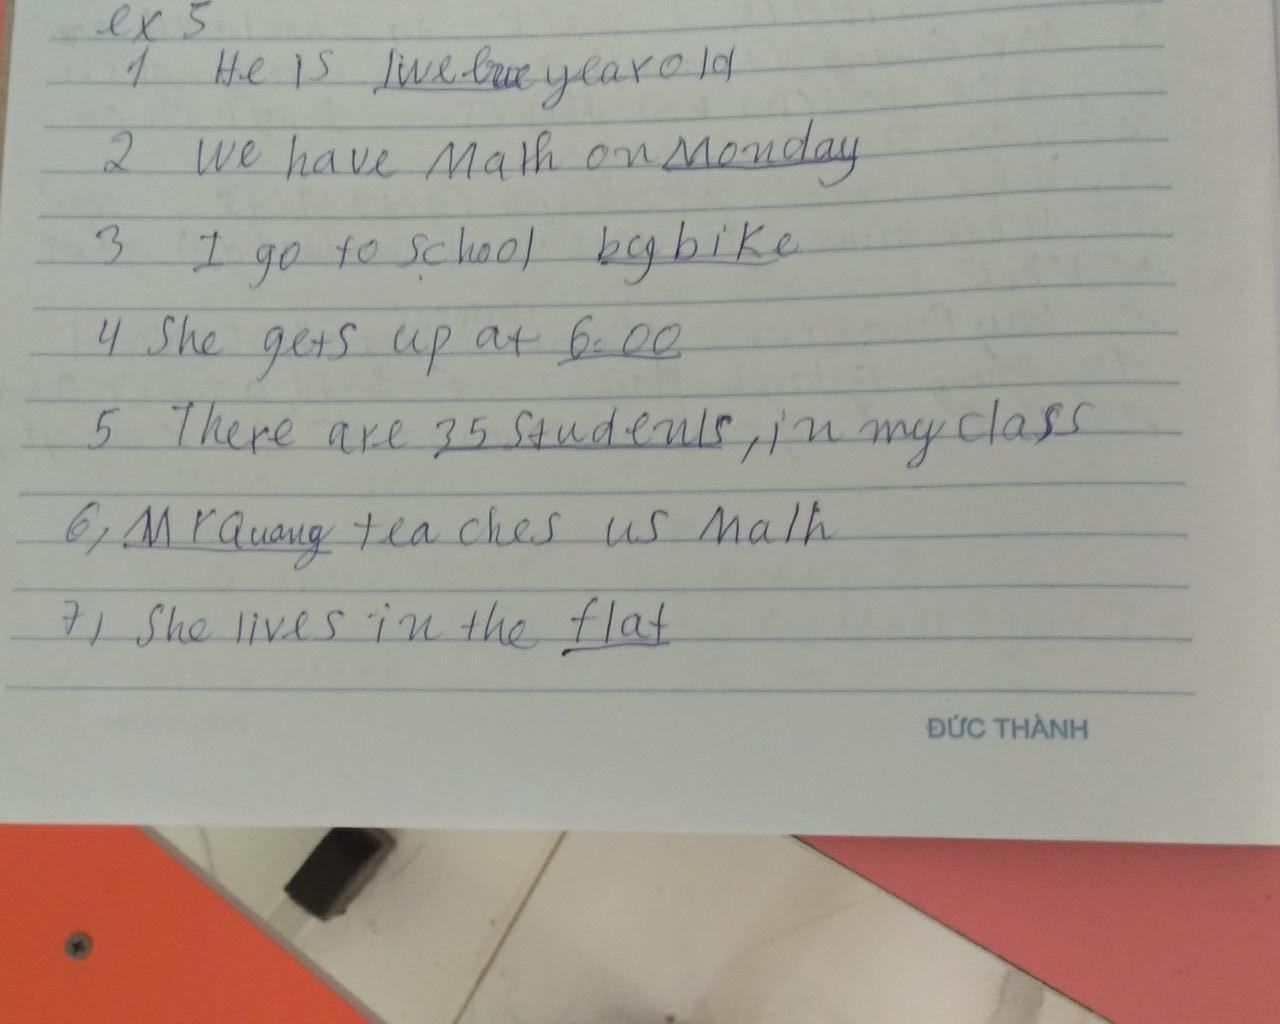 ex 5
1 He is twelve year old
2 We have Math on Monday
3 I go to school by bike
4 She gets up at 6:00
5 There are 35 students, in my class
6, Mr Quang teaches us Math
7, She lives in the flat
ĐỨC THÀNH